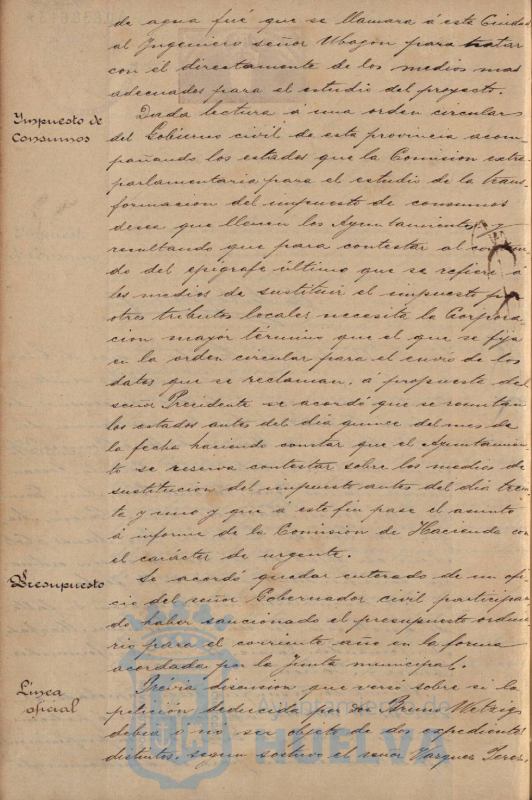 de agua fué que se llamara á esta Ciudad
al Ingeniero señor Ubagon para tratar
con él directamente de los medios mas
adecuados para el estudio del proyecto.
Impuesto de
Consumos
Dada lectura á una orden circular
del Gobierno civil de esta provincia acom-
pañando los estados que la Comision extra
parlamentaria para el estudio de la trans
formacion del impuesto de consumos
desea que llenen los Ayuntamientos y
resultando que para contestar al
do del epígrafe último que se refiere á
los medios de sustituir el impuesto por
otros tributos locales necesita la Corpora
cion mayor término que el que se fija
en la orden circular para el envio de los
datos que se reclaman, á propuesta del
señor Presidente se acordó que se remitan
los estados antes del dia quince del mes de
la fecha haciendo constar que el Ayuntamien
to se reserva contestar sobre los medios de
sustitucion del impuesto antes del dia trein
ta y uno y que á este fin pase el asunto
á informe de la Comision de Hacienda con
el carácter de urgente.
Presupuesto
Se acordó quedar enterado de un ofi
cio del señor Gobernador civil participan
do haber sancionado el presupuesto ordina
rio para el corriente año en la forma
acordada por la Junta municipal.
Línea
oficial
Prévia discusion que versó sobre si la
peticion deducida por don Bruno Wetzig
debia ó no ser objeto de dos expedientes
distintos, segun sostuvo el señor Vazquez Perez,
Ayuntamiento de
HUELVA